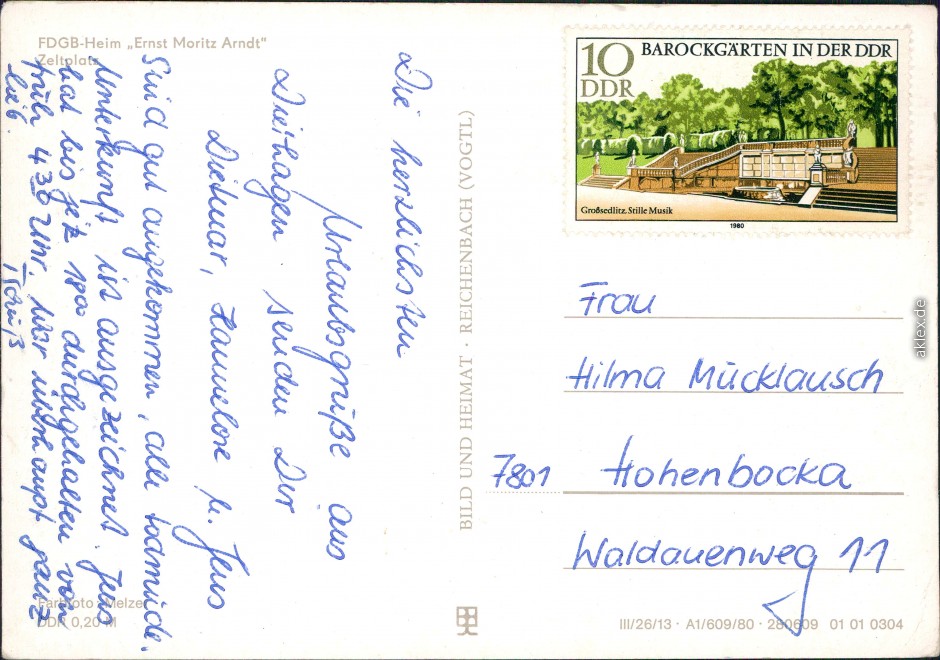 FDGB-Heim „Ernst Moritz Arndt"
Zeltplatz
Die herzlichsten
Urlaubsgrüße aus
Dierhagen senden Dir
Dietmar, Hannelore u. Jens
Sind gut angekommen, alle todmüde.
Unterkunft ist ausgezeichnet. Jens
hat bis jetz 18⁰⁰ durchgehalten von
früh 4³⁰ Uhr. War überhaupt ganz
lieb.
1 Gruß
Farbfoto: Melzer
DDR 0,20 M
BILD UND HEIMAT · REICHENBACH (VOGTL)
BAROCKGÄRTEN IN DER DDR
10
DDR
Großsedlitz, Stille Musik
1980
Frau
Hilma Mücklausch
7801 Hohenbocka
Waldauenweg 11
III/26/13 · A1/609/80 · 280609 01 01 0304
aklex.de